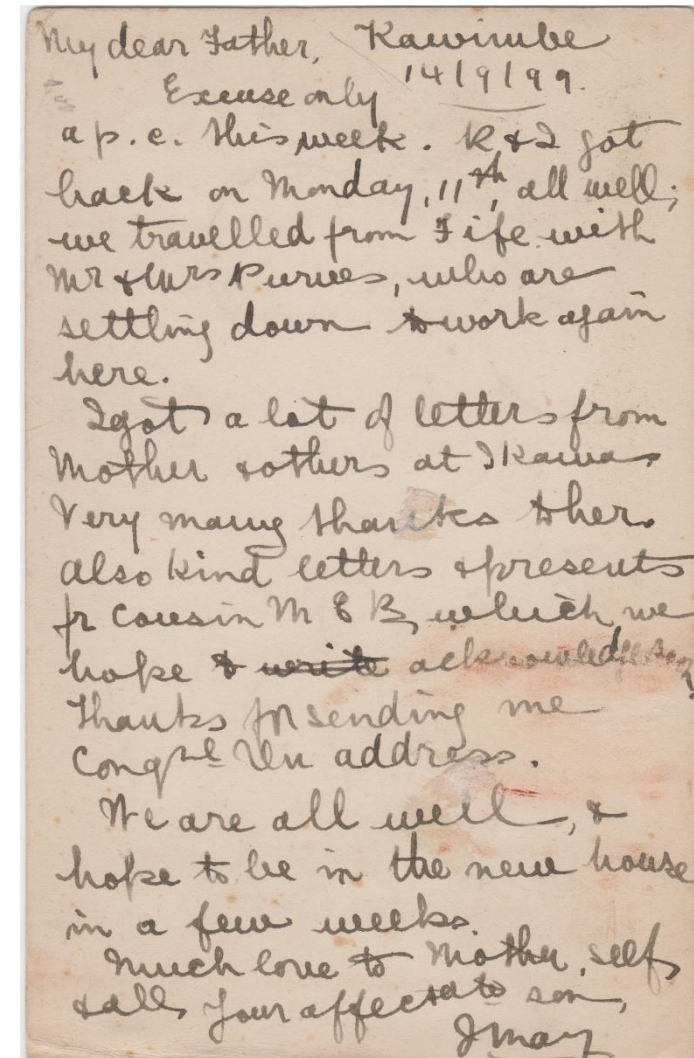 My dear Father, Kawimbe
14/9/99.
Excuse only
a p.c. this week. R & I got
back on Monday, 11th, all well;
we travelled from Fife with
Mr & Mrs Purves, who are
settling down to work again
here.
I got a lot of letters from
Mother & others at Ikawa
Very many thanks to her.
also kind letters & presents
fr Cousin M E B, which we
hope to write acknowledge soon.
Thanks for sending me
Congnl Un address.
We are all well, &
hope to be in the new house
in a few weeks.
Much love to Mother, self
& all, Your affectate son,
J May